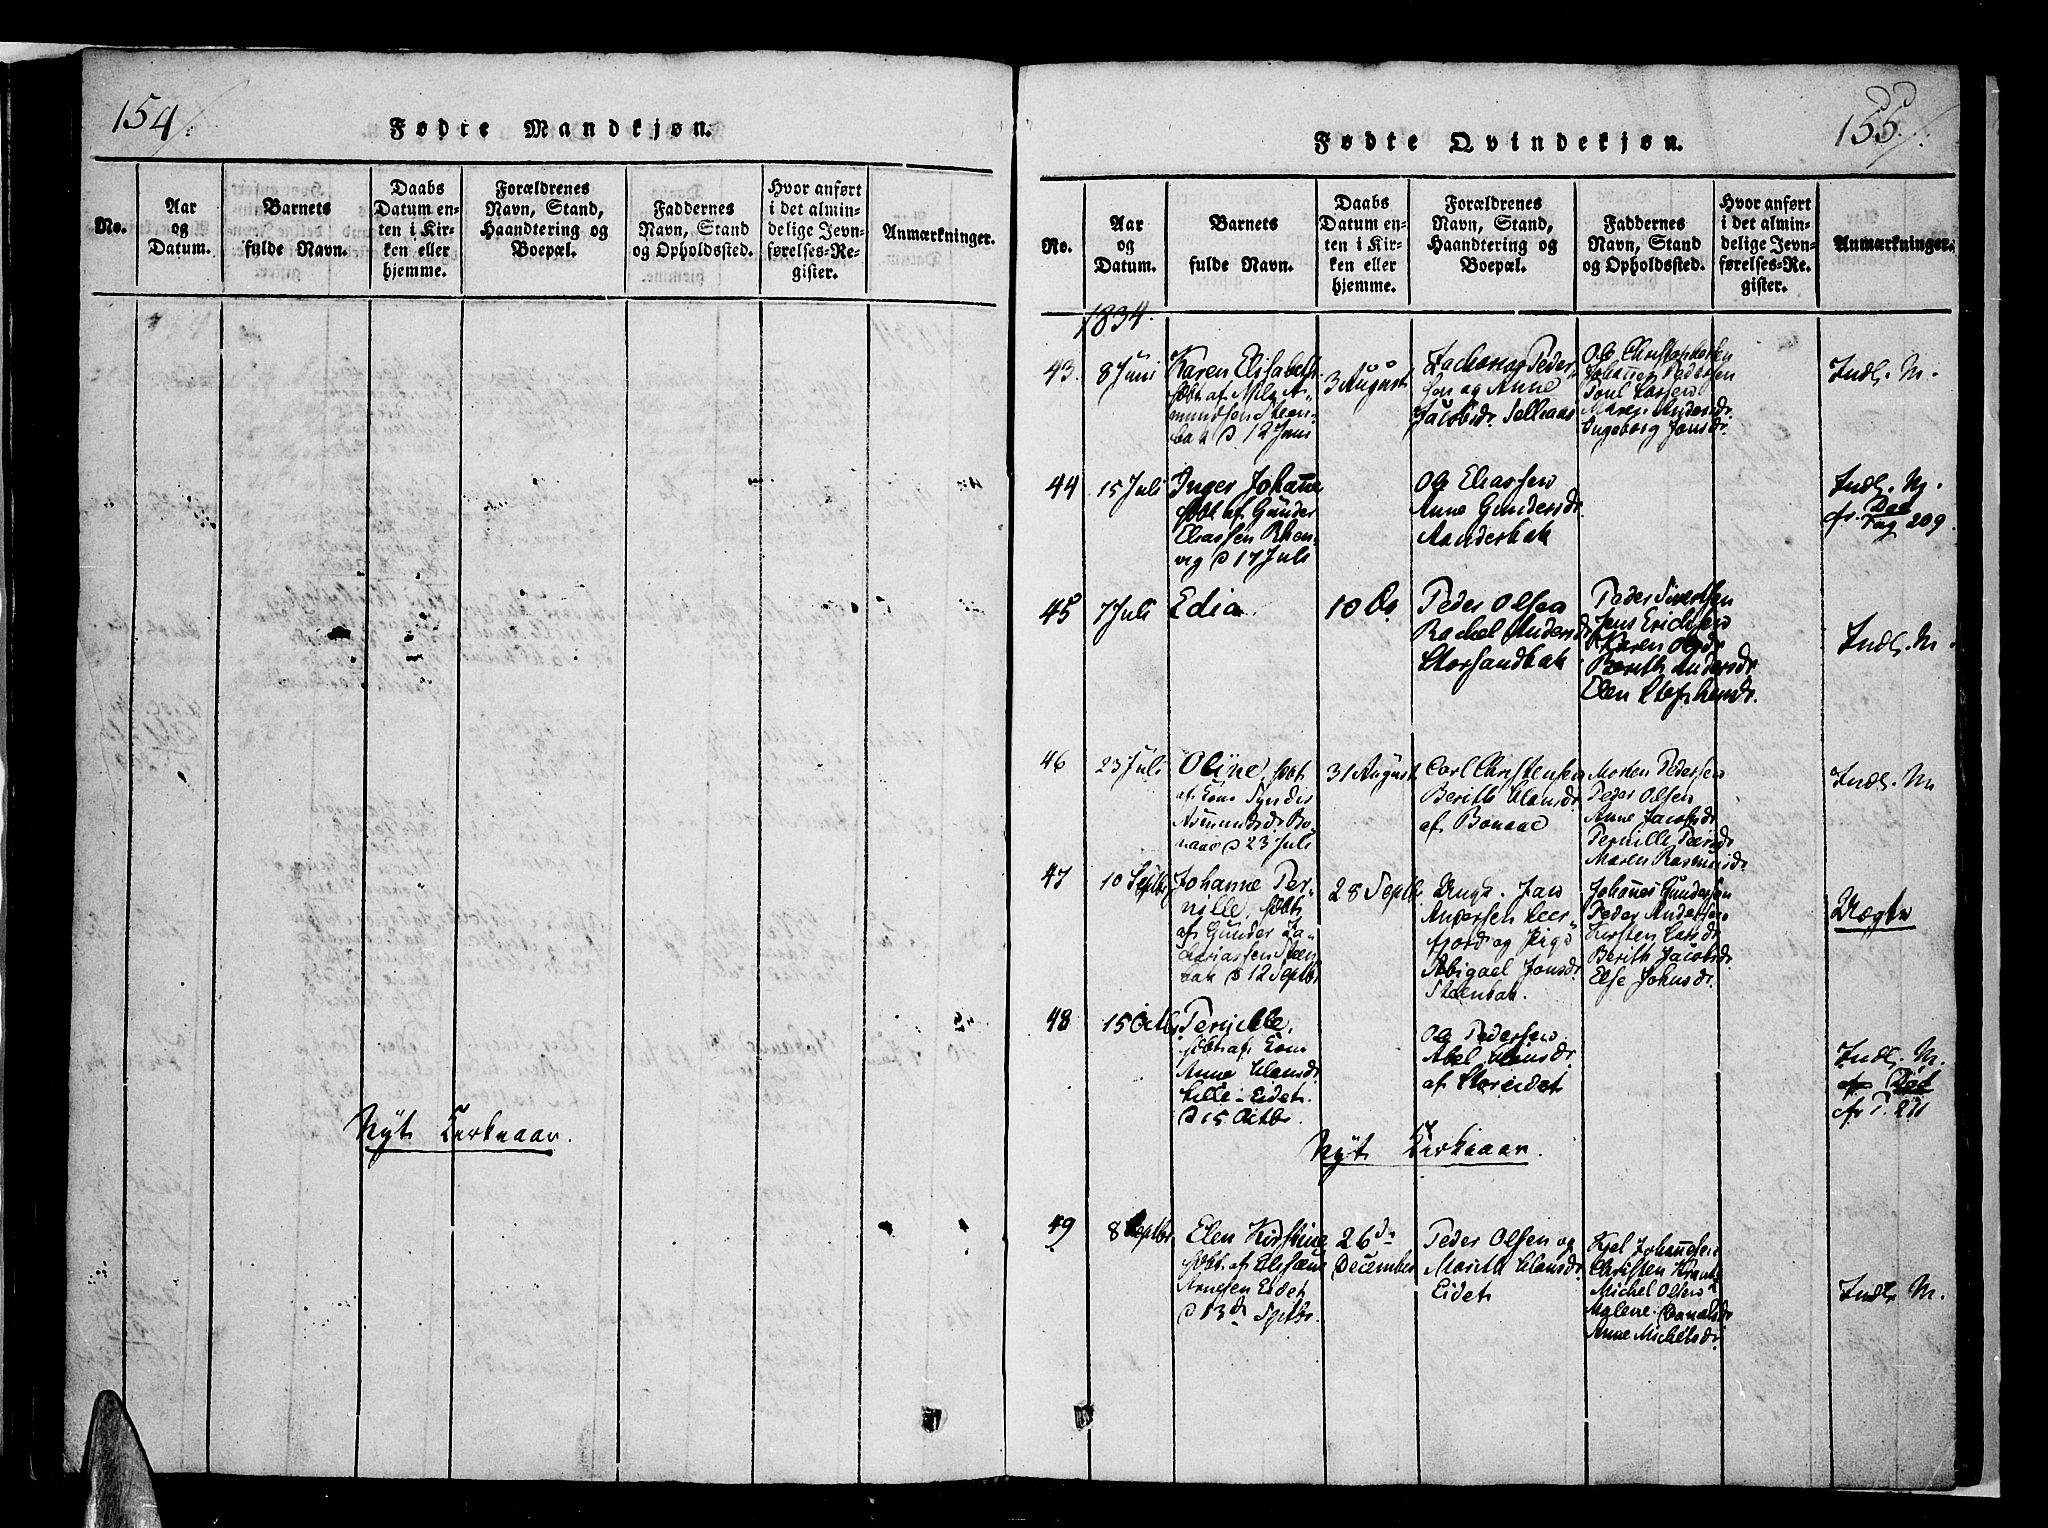 154/.
Fødte Mandkjøn.
No.
Aar
og
Datum.
Barnets
fulde Navn.
Daabs
Datum en-
ten i Kir-
ken eller
hjemme.
Forældrenes
Navn, Stand,
Haandtering og
Boepæl.
Faddernes
Navn, Stand
og Opholdssted.
Hvor anført
i det almin-
delige Jevn-
førelses-Re-
gister.
Anmærkninger.
Nyt Kirkeaar.
155/.
Fødte Qvindekjøn.
No.
Aar
og
Datum.
Barnets
fulde Navn.
Daabs
Datum en-
ten i Kir-
ken eller
hjemme.
Forældrenes
Navn, Stand,
Haandtering og
Boepæl.
Faddernes
Navn, Stand
og Opholdssted.
Hvor anført
i det almin-
delige Jevn-
førelses-Re-
gister.
Anmærkninger.
1834.
43.
8 Juni
Karen Elisabeth
døbt af Nils A-
mundsen Steen-
bak d 12 Juni
3 August
Zacharias Peder-
sen og Anne
Jacobsdr.
Ole Christophersen
Johannes Pedersen
Poul Larsen
Maren Andersdr.
Ingeborg Jonsdr.
Indl. M.
44
15 Juli
Inger Johanne
døbt af Gunder
Eliassen
d 17 Juli
Ole Eliassen
Anne Gundersdr.
Indl. M.
cfr. Død
Pag 209.
45
7 Juli
Edia
10 Do
Peder Olsen
Rachel Andersdr
Storsandbak
Peder Sivertsen
Jens Erichsen
Karen Olsdr
Berith Andersdr
Elen Stephensdr.
Indl. M.
46
23 Juli
Oline, døbt
af Kone Syndis
Asmundsdr. Bo-
naae d 23 Juli
31 August
Carl Christensen
Berith Clausdr
af Bonaae
Morten Pedersen
Peder Olsen
Anne Jacobsdr
Pernille Peersdr
Maren Rasmusdr
Indl. M
47
10 Septbr
Johanne Per-
nille, døbt
af Gunder Za-
chariassen Steen-
bak d 12 Septbr
28 Septbr.
Ungk. Jan
Andersen Leer-
fjord og Pige
Abigael Jonsdr
Steenbak.
Johannes Gundersen
Peder Andersen
Kirsten Larsdr
Berith Jacobsdr.
Else Johnsdr.
Uægte
48
15 Octbr
Pernille,
døbt af Kone
Anne Clausdr
Lille-Eidet.
d 15 Octbr.
Ole Pedersen
Abel Clausdr.
af Storeidet
Indl. M.
cfr P. 211
Nyt Kirkeaar.
49
8 Septbr
Elen Kirstine
døbt af
Arnesen Eidet
d 13de Septbr.
26de
December
Peder Olsen og
Marith Clausdr
Eidet
Kjel Johannesen
Christen
Michel Olsen
Malene
Anne Michelsdr
Indl. M.